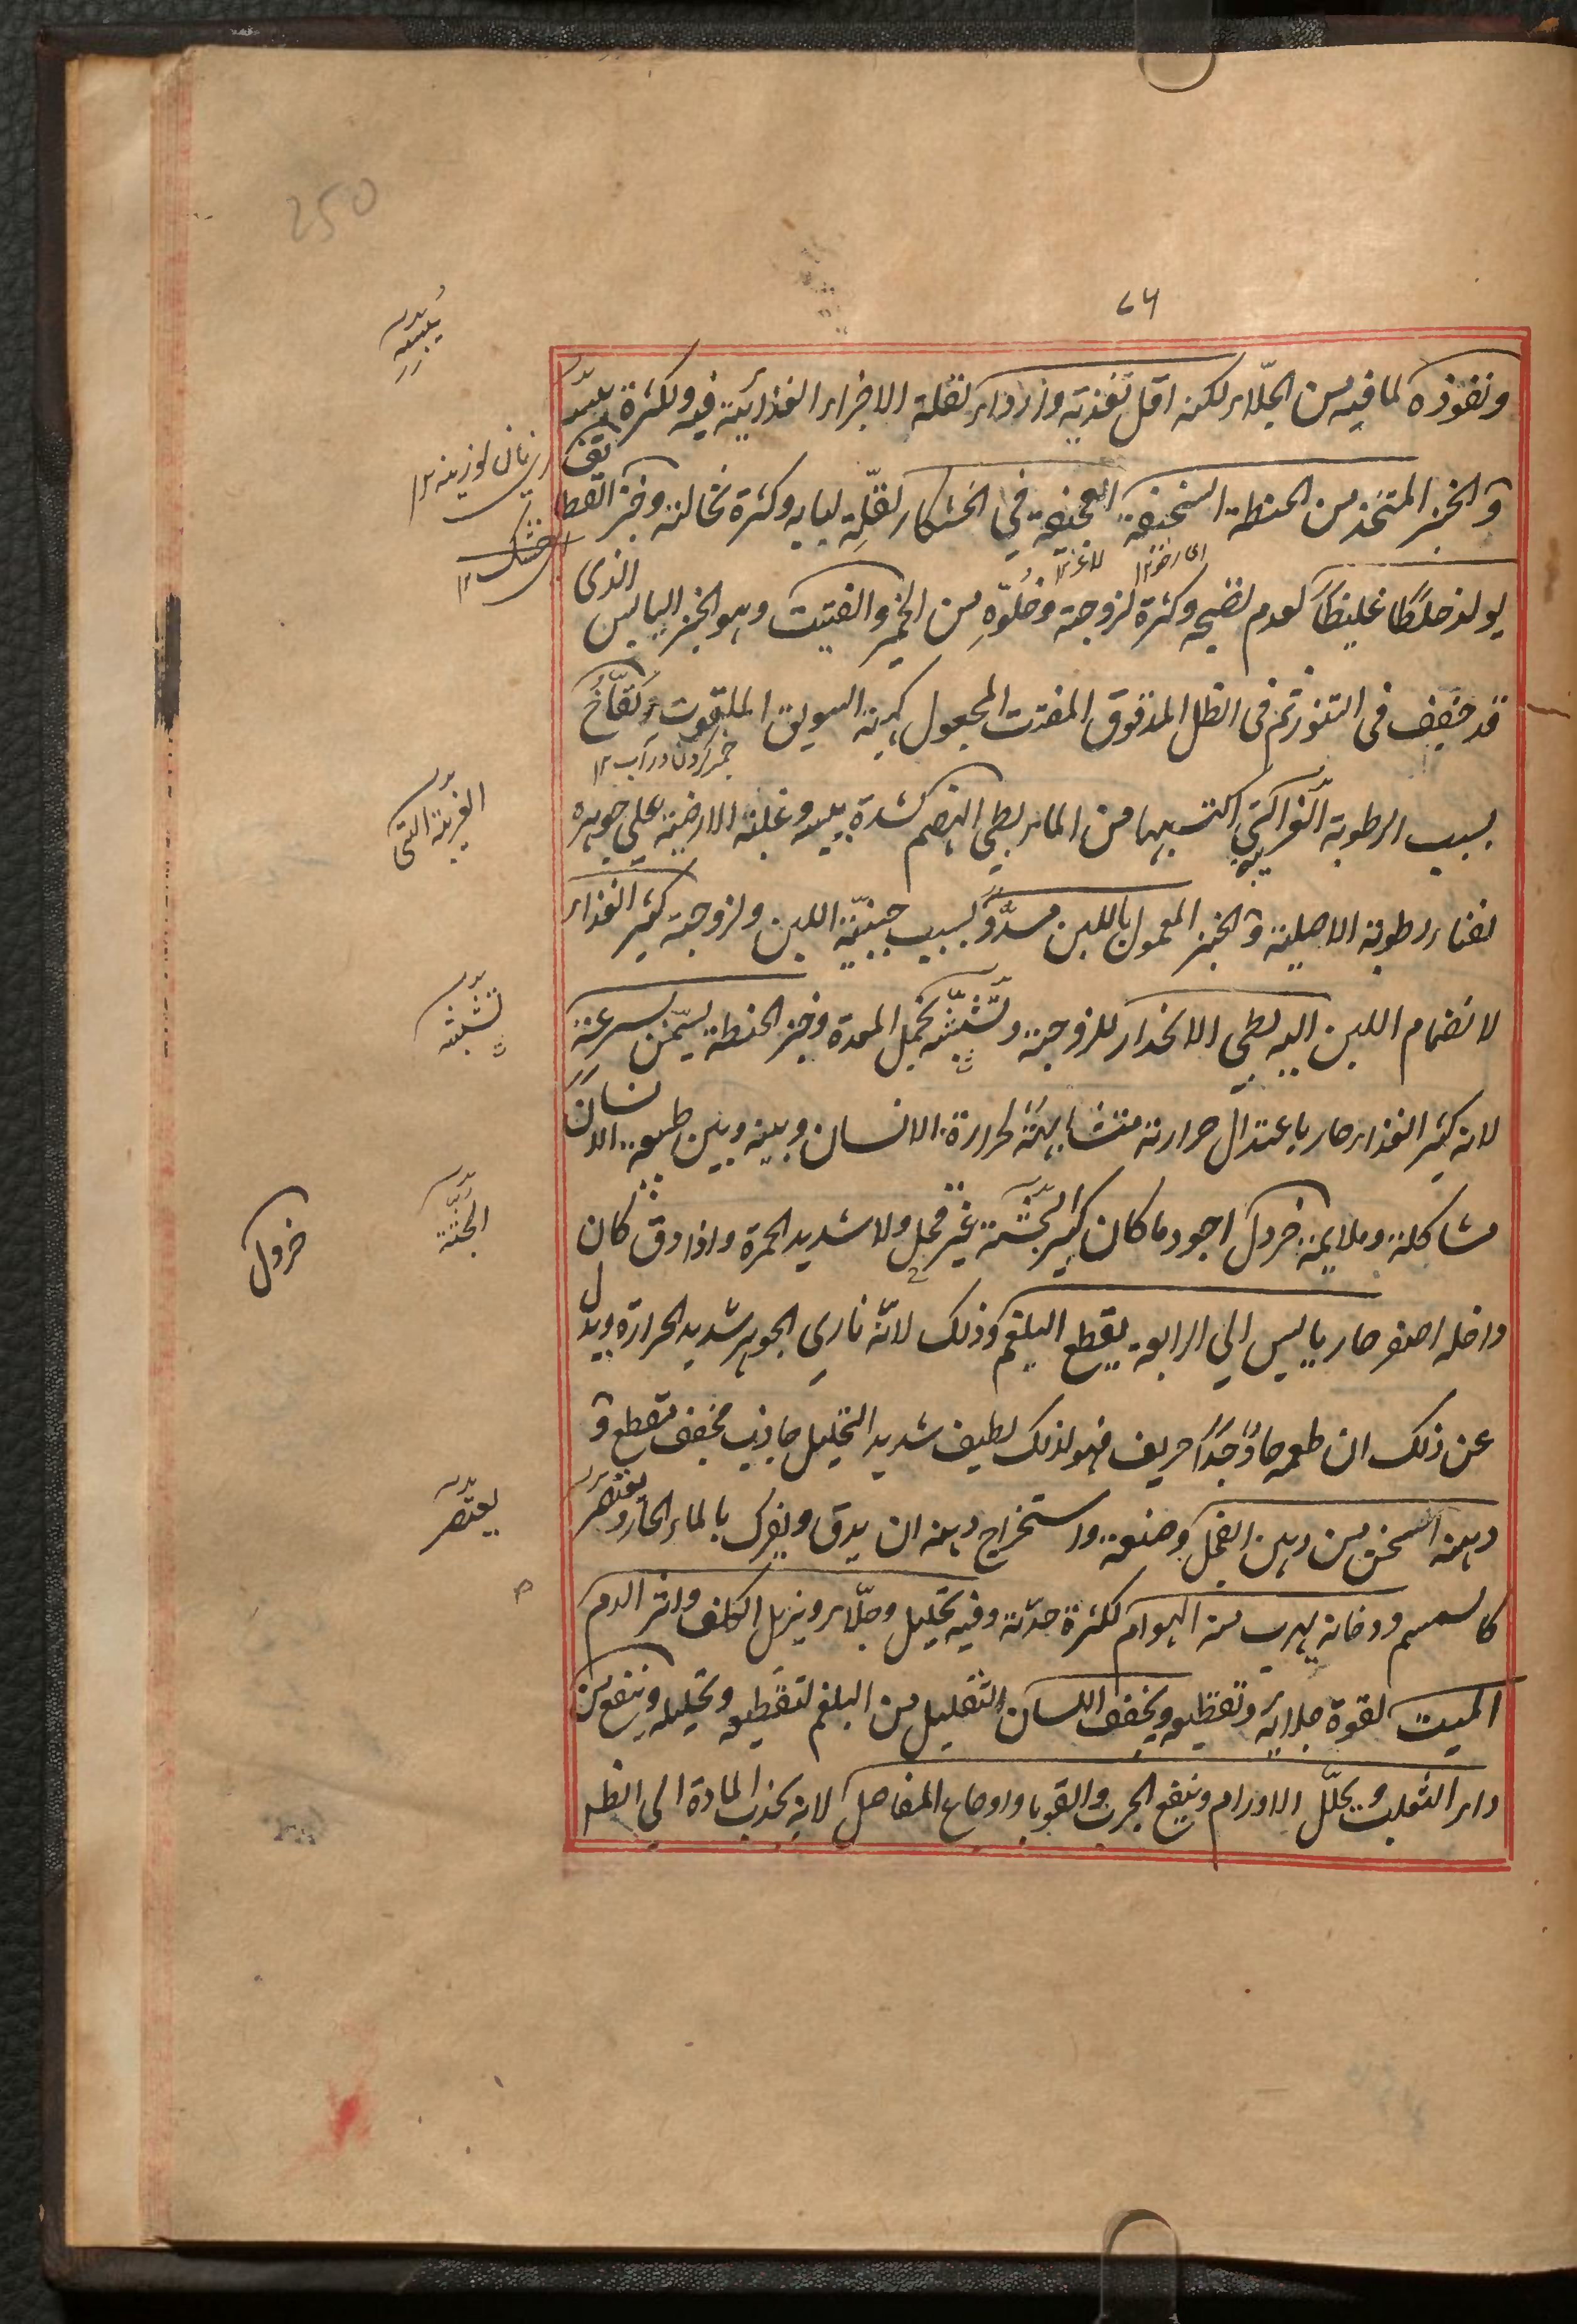 250
٧٦
ونفوذه لما فيه من الجلاء لكنه اقل تغذية وازداء لقلة الاجزاء الغذائية فيه ولكثرة يبسه
يبسه
و الخبز المتخذ من الحنطة السخيفة العجيفة في الخشكار لقلّة لبابه وكثرة نخالته وخبز القطائف
نان لوزينه ١٢
يولد خلطًا غليظًا لعدم نضجه وكثرة لزوجته وخلوّه من الخمير والفتيت وهو الخبز اليابس الذى
خشك ١٢
قد جفف فى التنور ثم فى الظل المدقوق المفتت المجعول كهيئة السويق الملتوت نفّاخ
تر كردن در آب ١٢
بسبب الرطوبة الغريبة التي اكتسبها من الماء بطي الهضم لشدة يبسه وغلبة الارضية على جوهره
الغريبة التى
لفناء رطوبته الاصلية و الخبز المعمول باللبن مسدّد بسبب جبنيّة اللبن ولزوجته كثير الغذاء
لانضمام اللبن اليه بطي الانحدار للزوجته وتشبّثه بخمل المعدة وخبز الحنطة يسمّن بسرعة
تشبثه
لانه كثير الغذاء حار باعتدال حرارته متشابهة لحرارة الانسان وبينه وبين طبيعة الانسان
مشاكلة وملايمة خردل اجود ما كان كبير الجثّة غير قحل ولا شديد الحمرة واذا دق كان
الجثّة
خردل
داخله اصفر حار يابس الي الرابعة يقطع البلغم وذلك لانّه ناري الجوهر شديد الحرارة ويدل
عن ذلك ان طعمه حادّ جدًّا حريف فهو لذلك لطيف شديد التحليل جاذب مجفف مقطع و
دهنه اسخن من دهن الفجل وصنعة واستخراج دهنه ان يدق ويفرك بالماء الحار ويعتصر
يعتصر
كالسمسم ودخانه يهرب منه الهوام لكثرة حدّته وفيه تحليل وجلاء ويزيل الكلف واثر الدم
الميت لقوة جلائه وتقطيعه ويخفف اللسان الثقيل من البلغم لتقطيعه وتحليله وينفع من
داء الثعلب ويحلّل الاورام وينفع الجرب والقوبا واوجاع المفاصل لانه يجذب المادة الى الظاهر